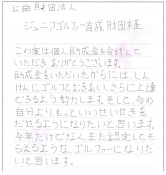 公益財団法人
ジュニアゴルファー育成財団様
この度は個人助成金を給付して
いただきありがとうございます。
助成金をいただいたからには、しん
けんにゴルフとむきあい、さらに上達
できるよう、努力します。そして、今の
自分よりも、もっといいせいせきを
だせるようになりたいと思います。
今年だけでなくまた認定しても
らえるような、ゴルファーになりた
いと思います。